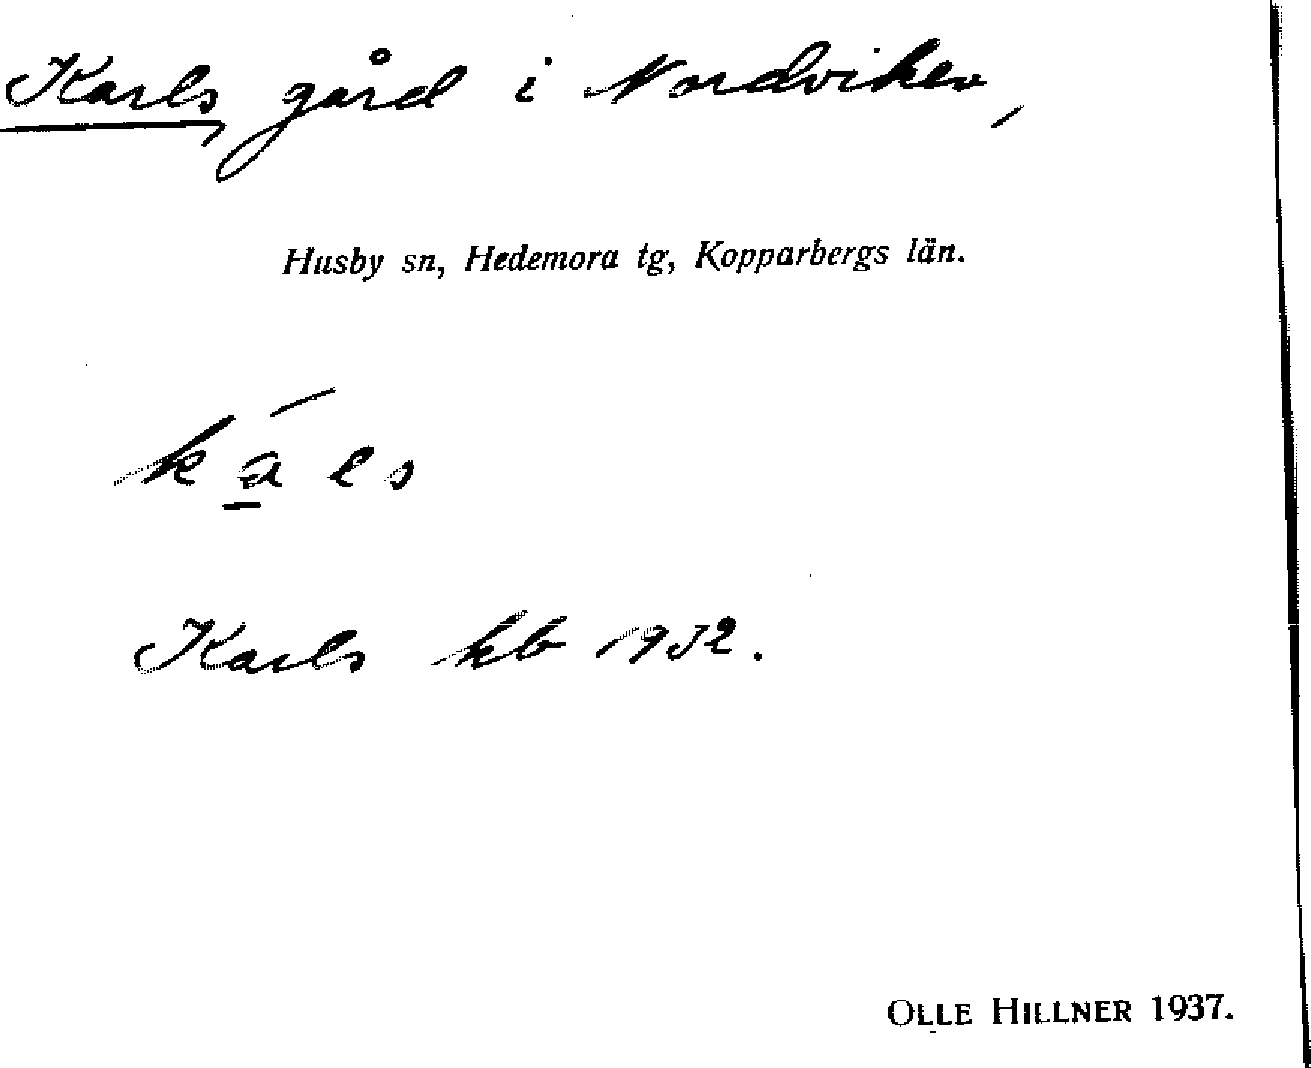 Karls, gård i Nordviken,
Husby sn, Hedemora tg, Kopparbergs län.
ká̱ls
Karls kb 1932.
OLLE HILLNER 1937.